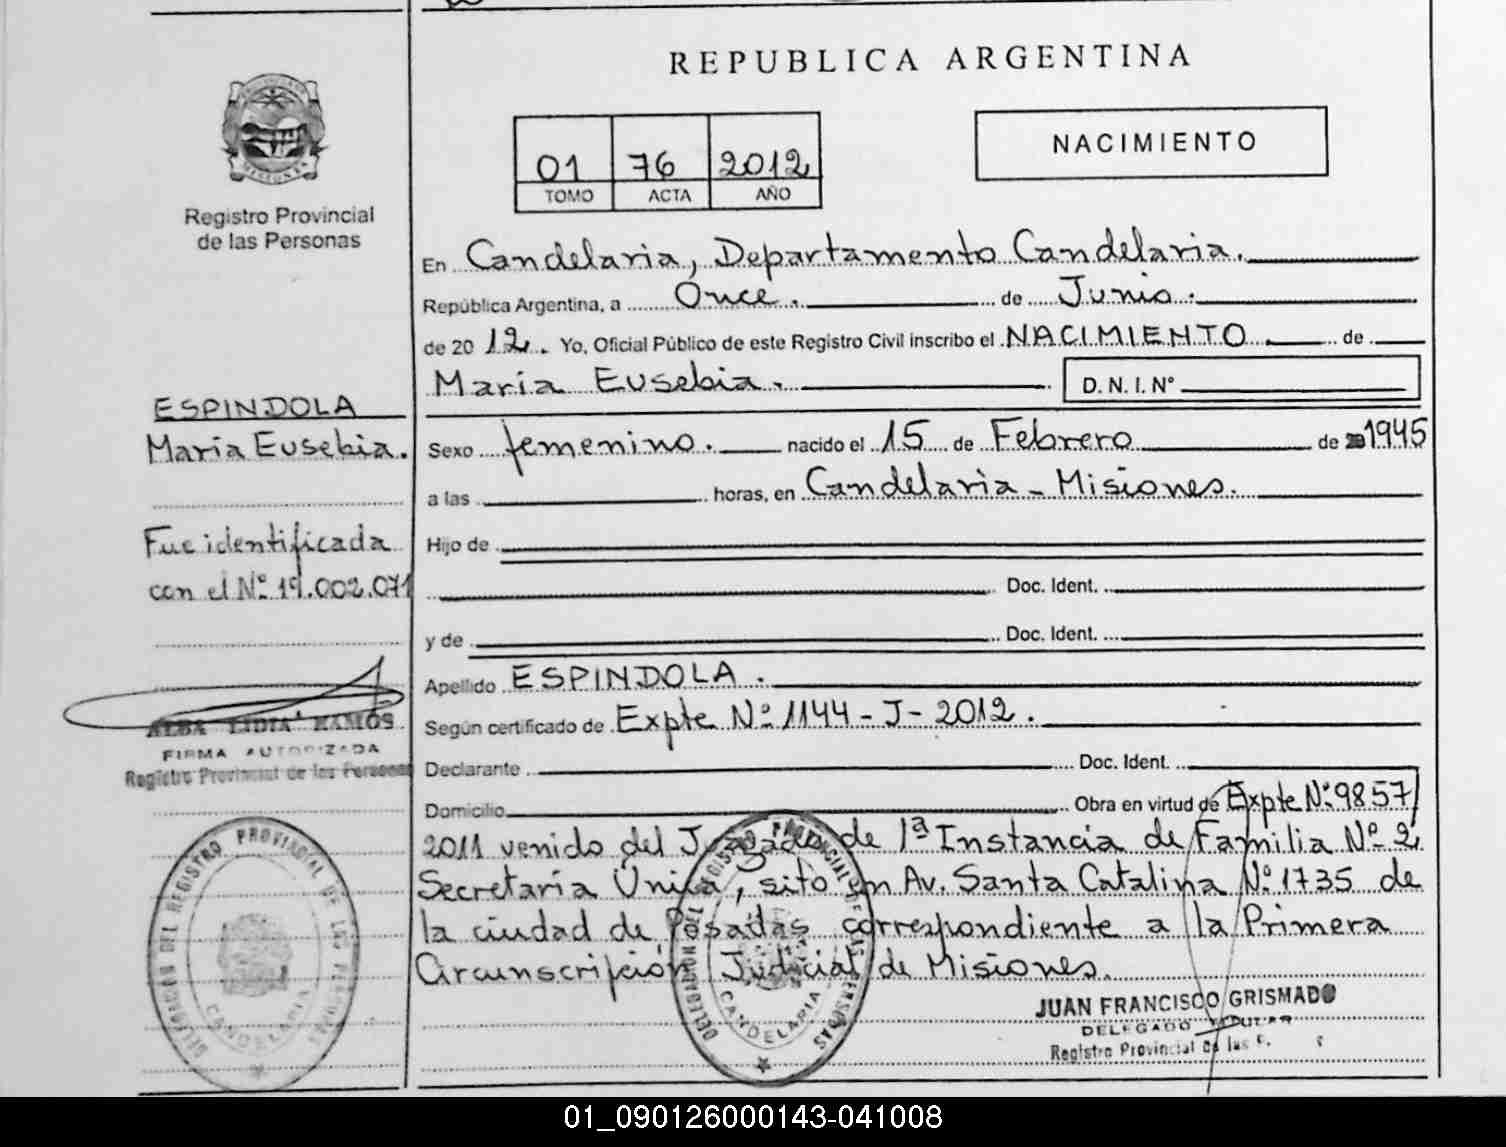 REPUBLICA ARGENTINA
MISIONES
Registro Provincial
de las Personas
01 76 2012
TOMO ACTA AÑO
NACIMIENTO
En Candelaria, Departamento Candelaria.
República Argentina, a Once. de Junio.
de 20 12. Yo, Oficial Público de este Registro Civil inscribo el NACIMIENTO de
María Eusebia. D. N. I. N°
ESPINDOLA
María Eusebia.
Sexo femenino. nacido el 15 de Febrero de 1945
a las horas, en Candelaria - Misiones.
Fue identificada
con el N° 19.002.071
Hijo de
Doc. Ident.
y de Doc. Ident.
Apellido ESPINDOLA.
Según certificado de Expte N° 1144 - J - 2012.
ALBA LIDIA RAMOS
FIRMA AUTORIZADA
Registro Provincial de las Personas
Declarante Doc. Ident.
Domicilio Obra en virtud de Expte N° 9857/
2011 venido del Juzgado de 1ª Instancia de Familia N° 2
Secretaría Única, sito en Av. Santa Catalina N° 1735 de
la ciudad de Posadas, correspondiente a la Primera
Circunscripción Judicial de Misiones.
DELEGACION DEL REGISTRO PROVINCIAL DE LAS PERSONAS
CANDELARIA
DELEGACION DEL REGISTRO PROVINCIAL DE LAS PERSONAS
CANDELARIA
JUAN FRANCISCO GRISMADO
DELEGADO TITULAR
Registro Provincial de las
01_090126000143-041008